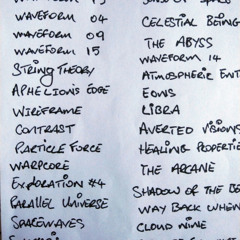 WAVEFORM 04
WAVEFORM 09
WAVEFORM 15
STRING THEORY
APHELIONS EDGE
WIREFRAME
CONTRAST
PARTICLE FORCE
WARPCORE
EXPLORATION #4
PARALLEL UNIVERSE
SPACEWAVES
CELESTIAL BEING
THE ABYSS
WAVEFORM 14
ATMOSPHERIC ENT
EONS
LIBRA
AVERTED VISIONS
HEALING PROPERTIE
THE ARCANE
SHADOW OF THE BE
WAY BACK WHEN
CLOUD NINE